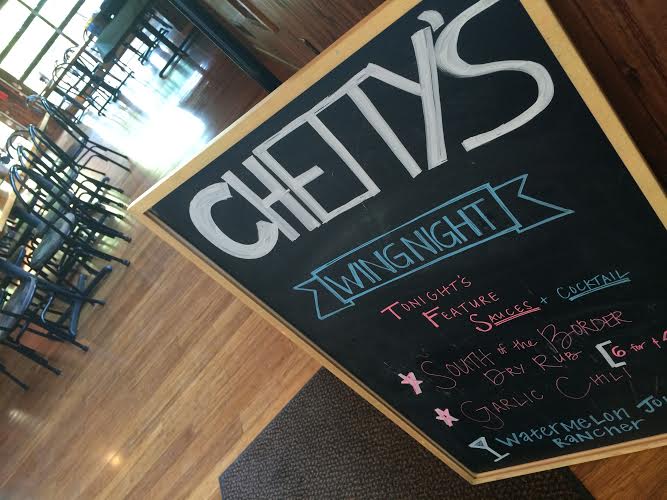 CHETTY'S
WINGNIGHT
TONIGHT'S
FEATURE
SAUCES + COCKTAIL
SOUTH of the BORDER
DRY RUB [6 for $
GARLIC CHILI
WATERMELON
RANCHER